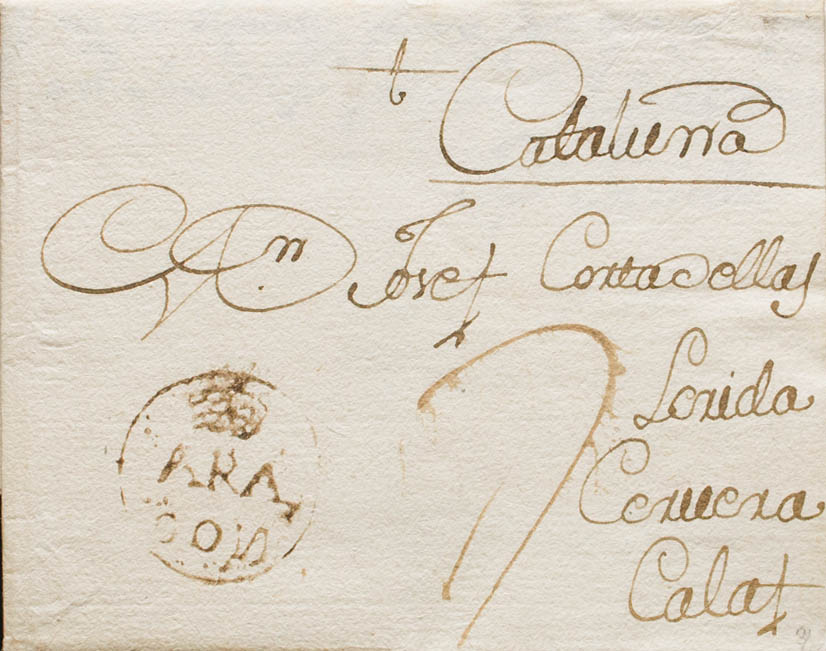 Cataluña
A Dn Josef Cortadellas
Lerida
Cervera
Calaf
ARA
GON
7